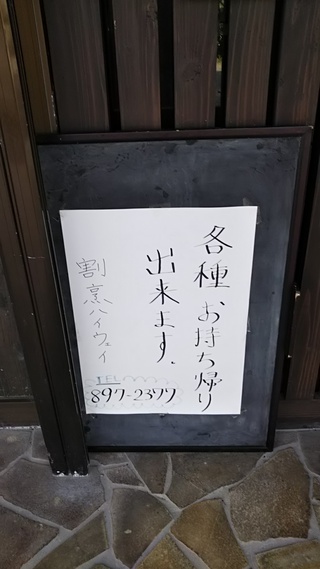 各種お持ち帰り
出来ます.
割烹ハイウェイ
TEL
897-2377